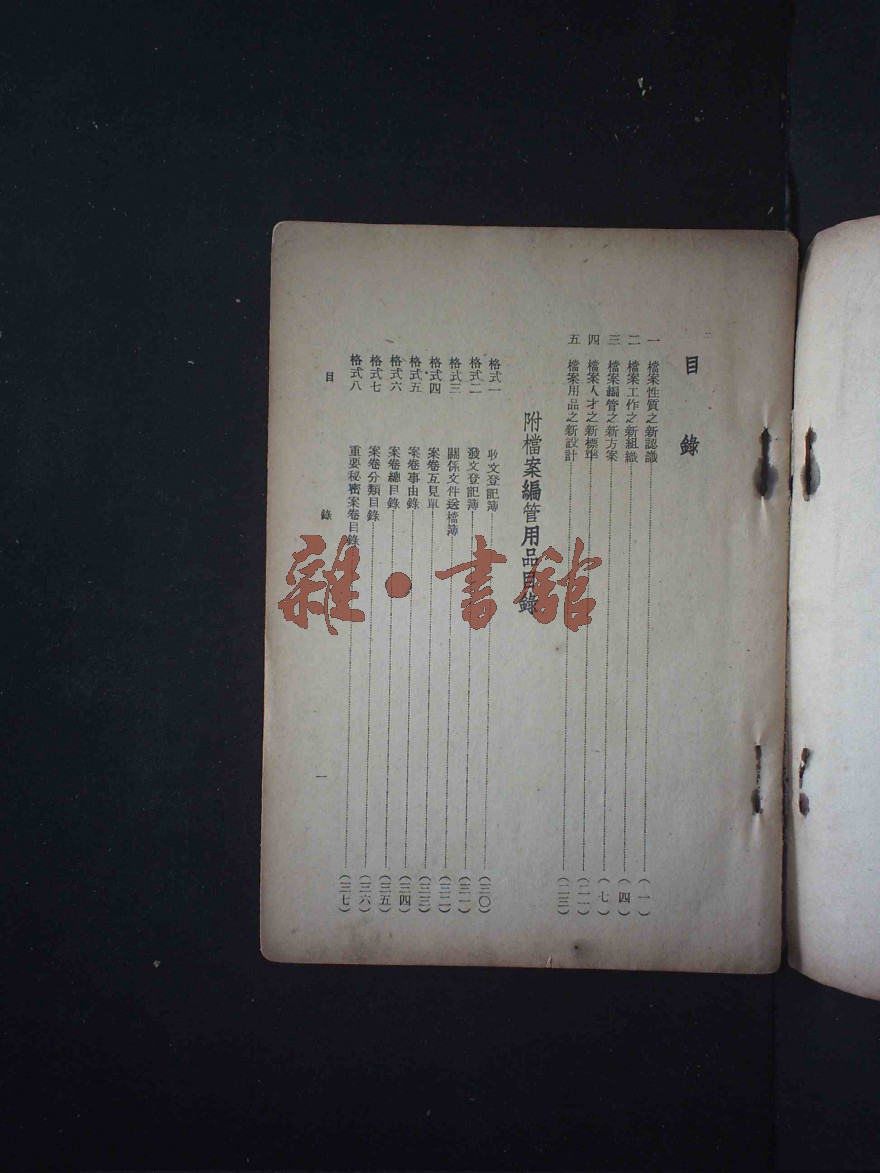 目錄
一 檔案性質之新認識 (一)
二 檔案工作之新組織 (四)
三 檔案編管之新方案 (七)
四 檔案人才之新標準 (二一)
五 檔案用品之新設計 (二三)
附檔案編管用品目錄
格式一 收文登記簿 (三〇)
格式二 發文登記簿 (三一)
格式三 關係文件送檔簿 (三二)
格式四 案卷互見單 (三三)
格式五 案卷事由錄 (三四)
格式六 案卷總目錄 (三五)
格式七 案卷分類目錄 (三六)
格式八 重要秘密案卷目錄 (三七)
目錄 一
雜·書館